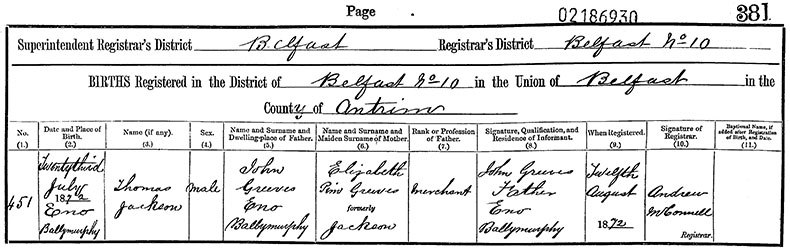 Page 02186930 381
Superintendent Registrar's District Belfast Registrar's District Belfast No 10
BIRTHS Registered in the District of Belfast No 10 in the Union of Belfast in the
County of Antrim
No. (1.)
Date and Place of Birth. (2.)
Name (if any). (3.)
Sex. (4.)
Name and Surname and Dwelling-place of Father. (5.)
Name and Surname and Maiden Surname of Mother. (6.)
Rank or Profession of Father. (7.)
Signature, Qualification, and Residence of Informant. (8.)
When Registered. (9.)
Signature of Registrar. (10.)
Baptismal Name, if added after Registration of Birth, and Date. (11.)
451
Twentythird
July
1872
Eno
Ballymurphy
Thomas
Jackson
Male
John
Greeves
Eno
Ballymurphy
Elizabeth
Pim Greeves
formerly
Jackson
Merchant
John Greeves
Father
Eno
Ballymurphy
Twelfth
August
1872
Andrew
McConnell
Registrar.